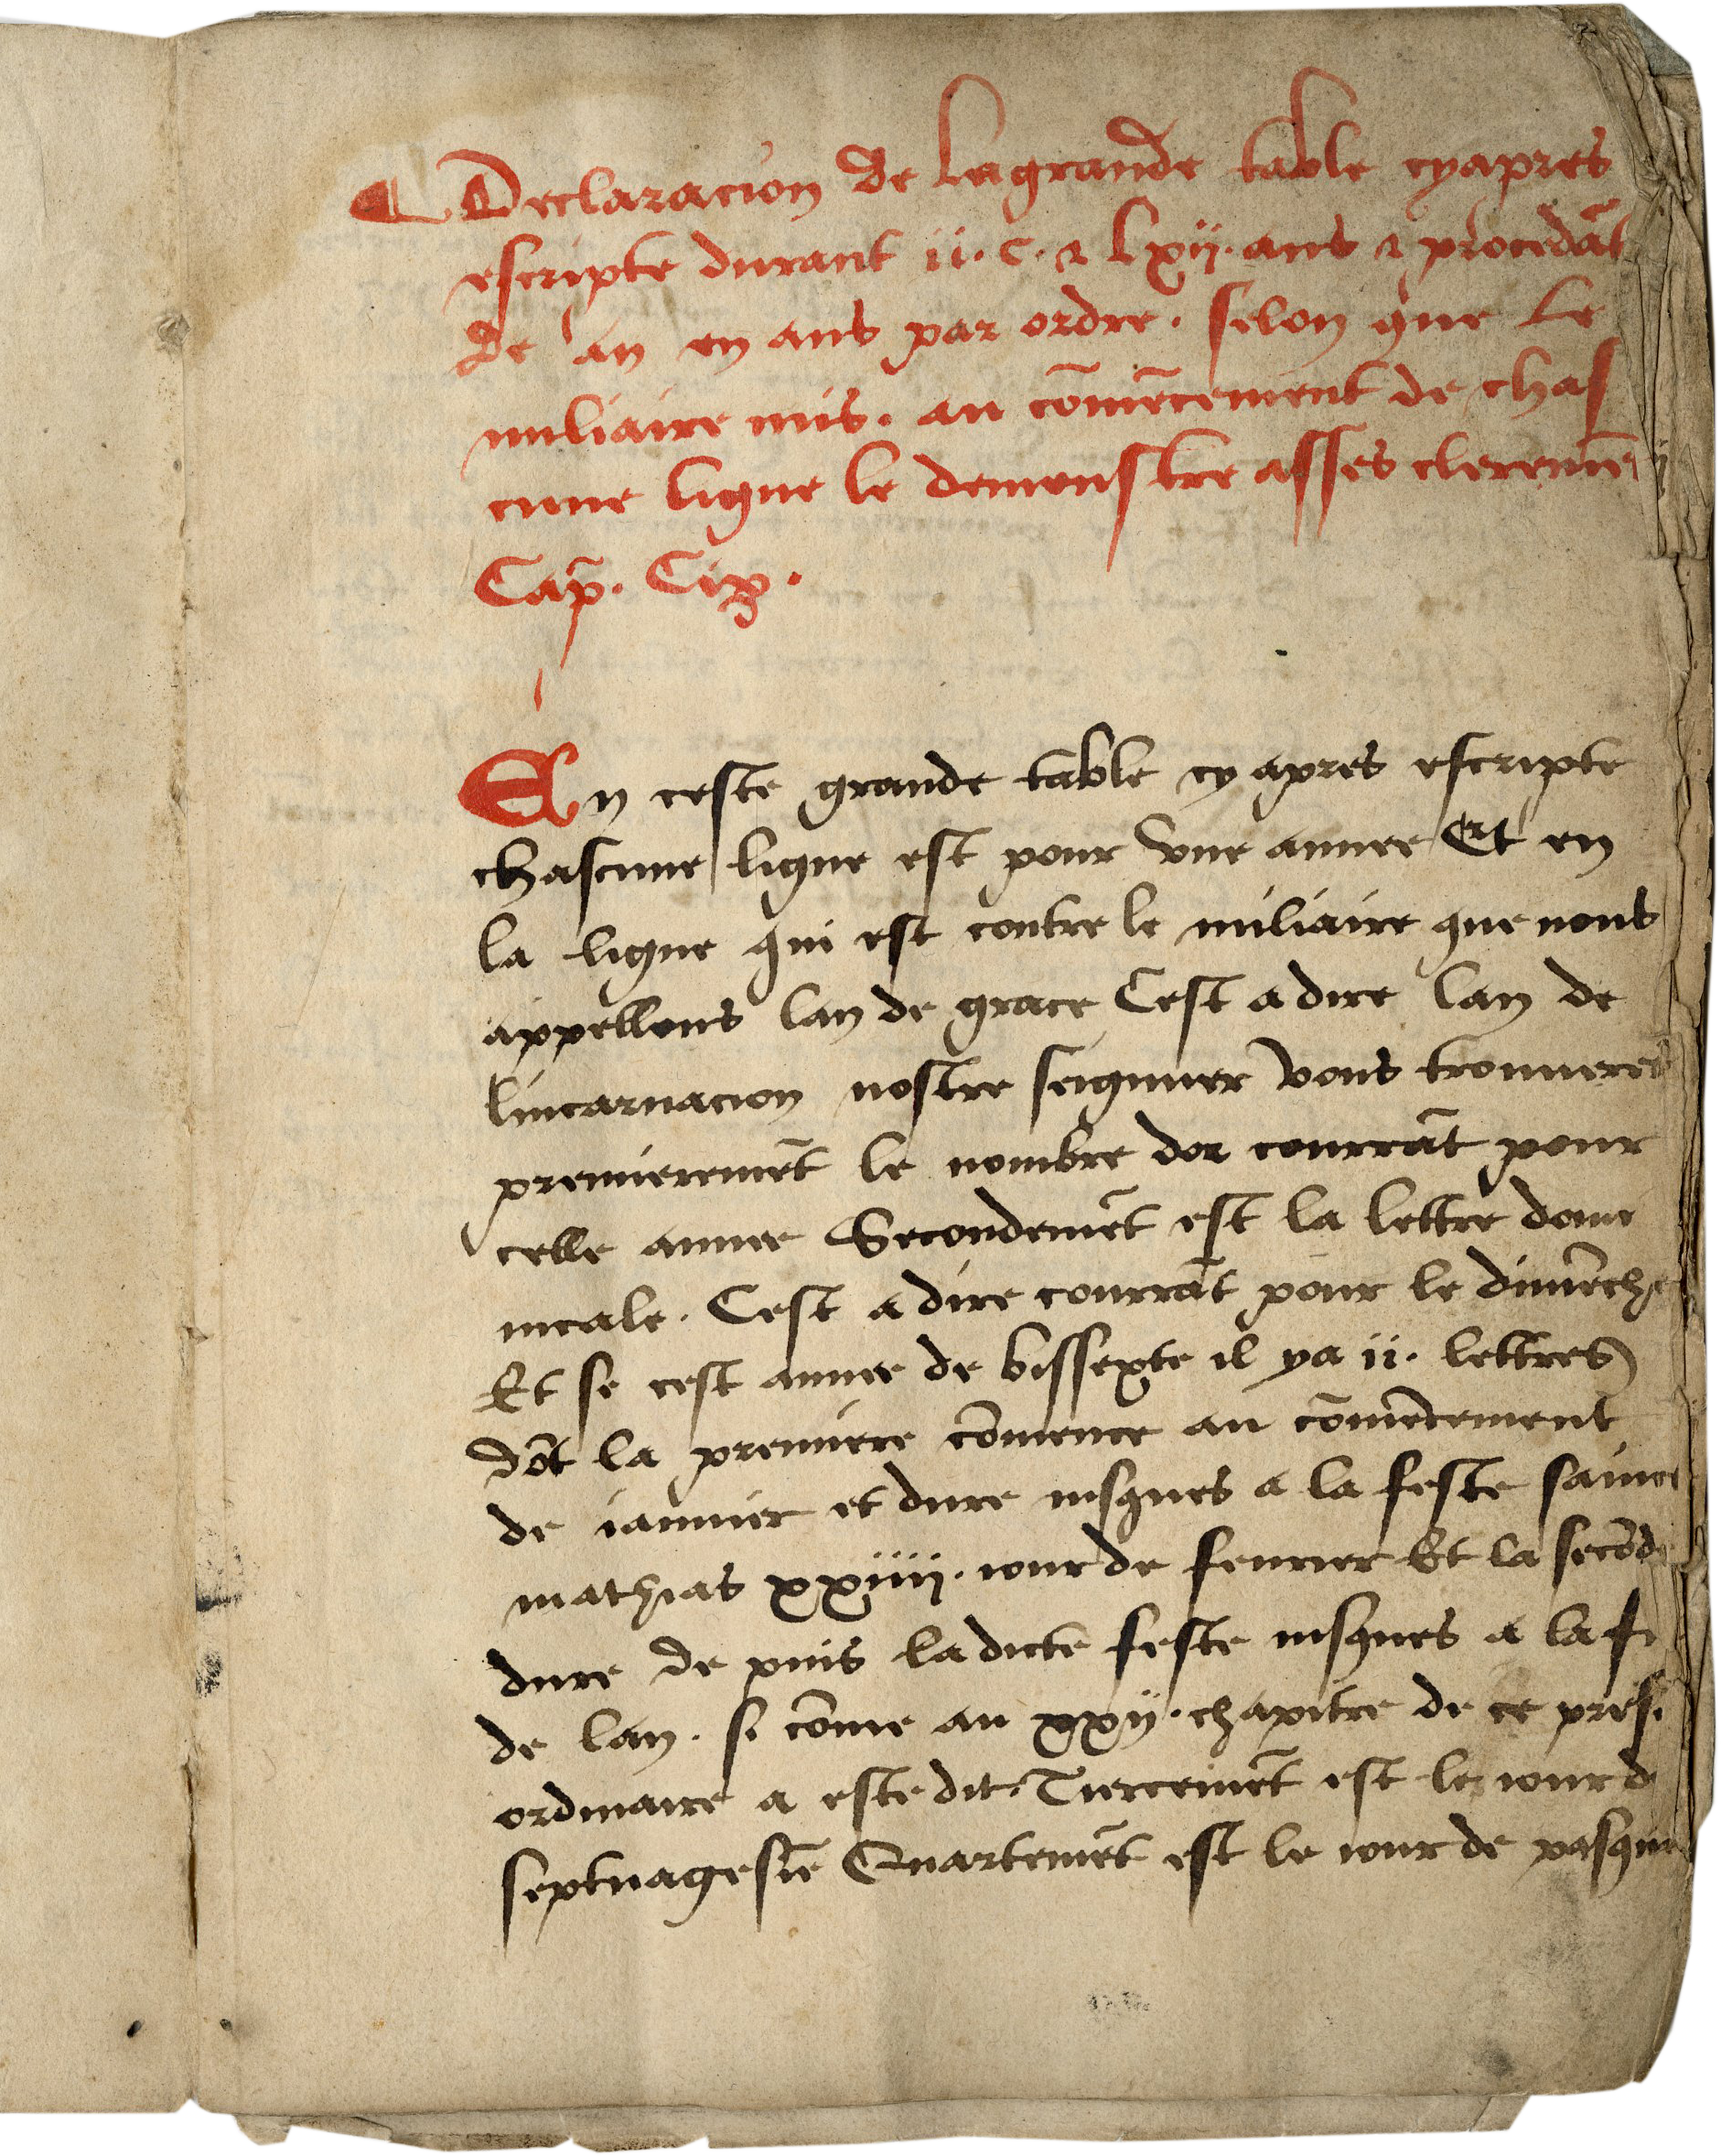 ¶ Declaracion de la grande table cy apres
escripte durant ii. c. ⁊ lxij. ans ⁊ procedāt
de an en ans par ordre. selon que le
miliaire mis. au cōmēcement de chas
cune ligne le demonstre asses cleremēt
Cap̄. Cix.
En ceste grande table cy apres escripte
chascune ligne est pour vne annee Et en
la ligne qui est contre le miliaire que nous
appellons lan de grace Cest a dire lan de
lincarnacion nostre seigneur vous trouueres
premieremēt le nombre dor courrāt pour
celle annee Secondemēt est la lettre domi
nicale. Cest a dire courrāt pour le dimēche
Et se cest annee de bissexte il ya ii. lettres
dōt la premiere cōmence au cōmēcement
de ianuier et dure iusques a la feste sainct
mathias xxiiij. iour de feurier Et la secōde
dure de puis ladicte feste iusques a la fi
de lan. si cōme au xxij. chapitre de ce pres.
ordinaire a este dit. Tiercemēt est le iour d
septuagesīe Quartemēt est le iour de pasque